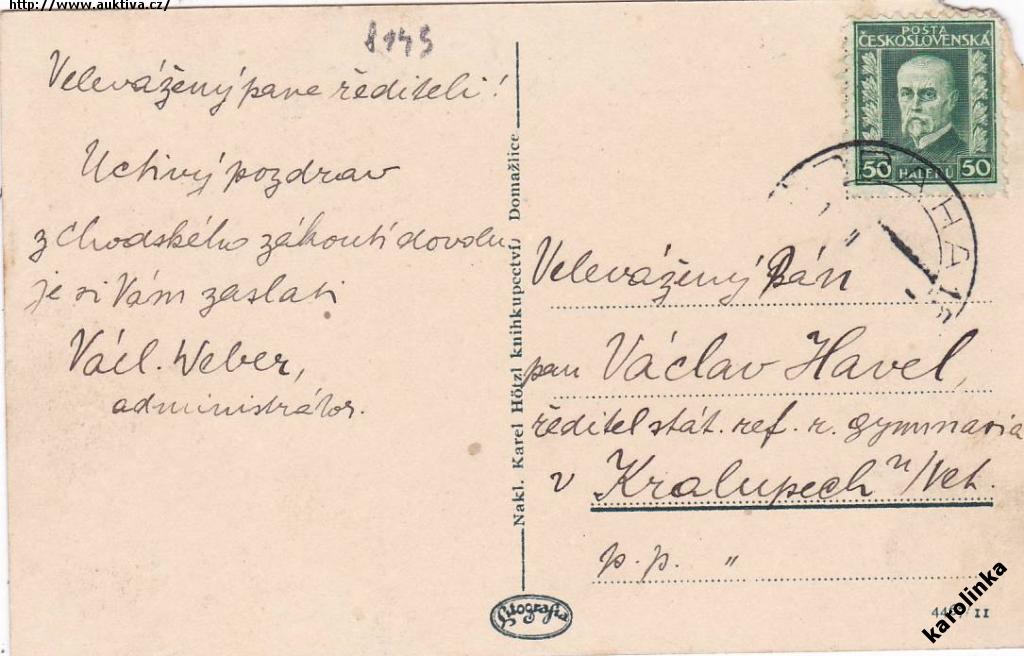 http://www.auktiva.cz/
8145
Velevážený pane řediteli!
Uctivý pozdrav
z Chodského zákoutí dovolu
je si Vám zaslati
Václ. Weber,
administrátor.
Nakl. Karel Hötzl knihkupectví, Domažlice
POŠTA
ČESKOSLOVENSKÁ
50 HALÉŘŮ 50
PRAHA 1
Velevážený Pán
pan Václav Havel,
ředitel stát. ref. r. gymnasia
v Kralupech n/Vlt.
p. p. "
II
karolinka